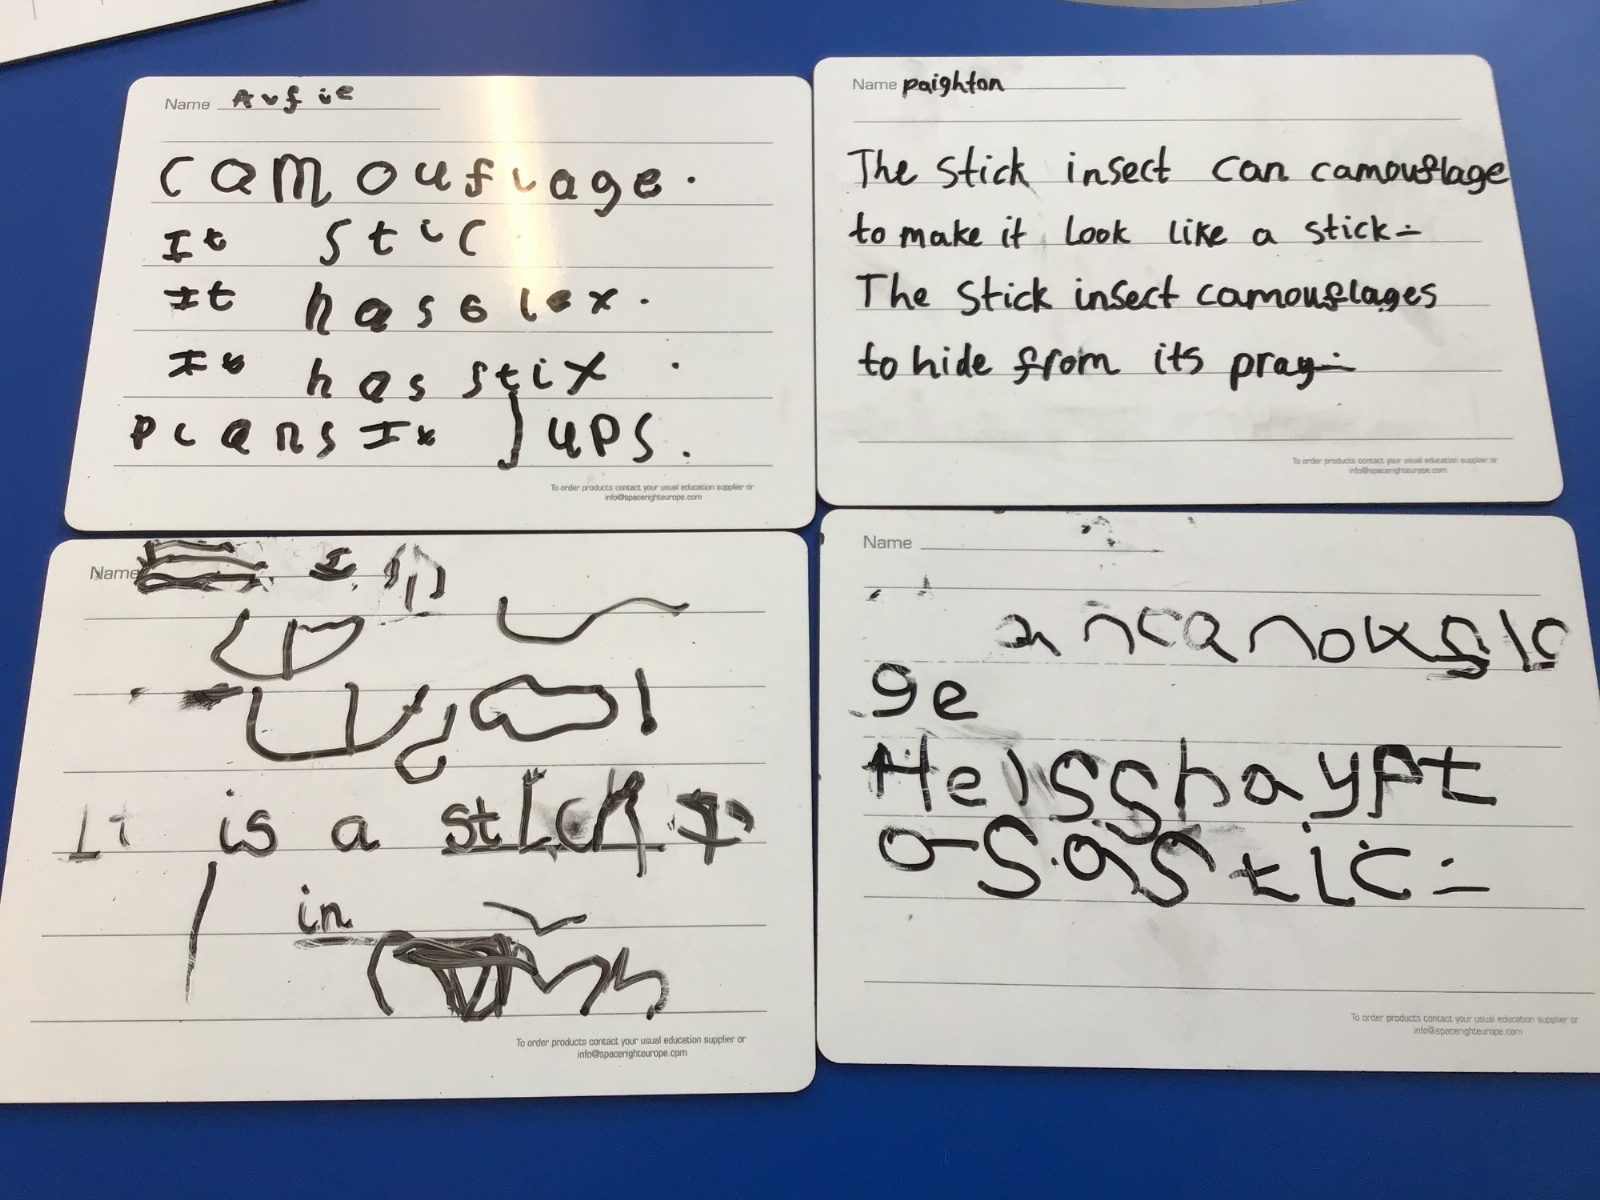 Name Aufie
camouflage.
It stic
It has 6 lex.
It has stix.
pcans It jups.
To order products contact your usual education supplier or
info@spacerighteurope.com
Name paighton
The stick insect can camouflage
to make it look like a stick.
The stick insect camouflages
to hide from its pray.
To order products contact your usual education supplier or
info@spacerighteurope.com
Name
It is a stick
in
To order products contact your usual education supplier or
info@spacerighteurope.com
Name
ge
He is shaypt
as a stic
To order products contact your usual education supplier or
info@spacerighteurope.com